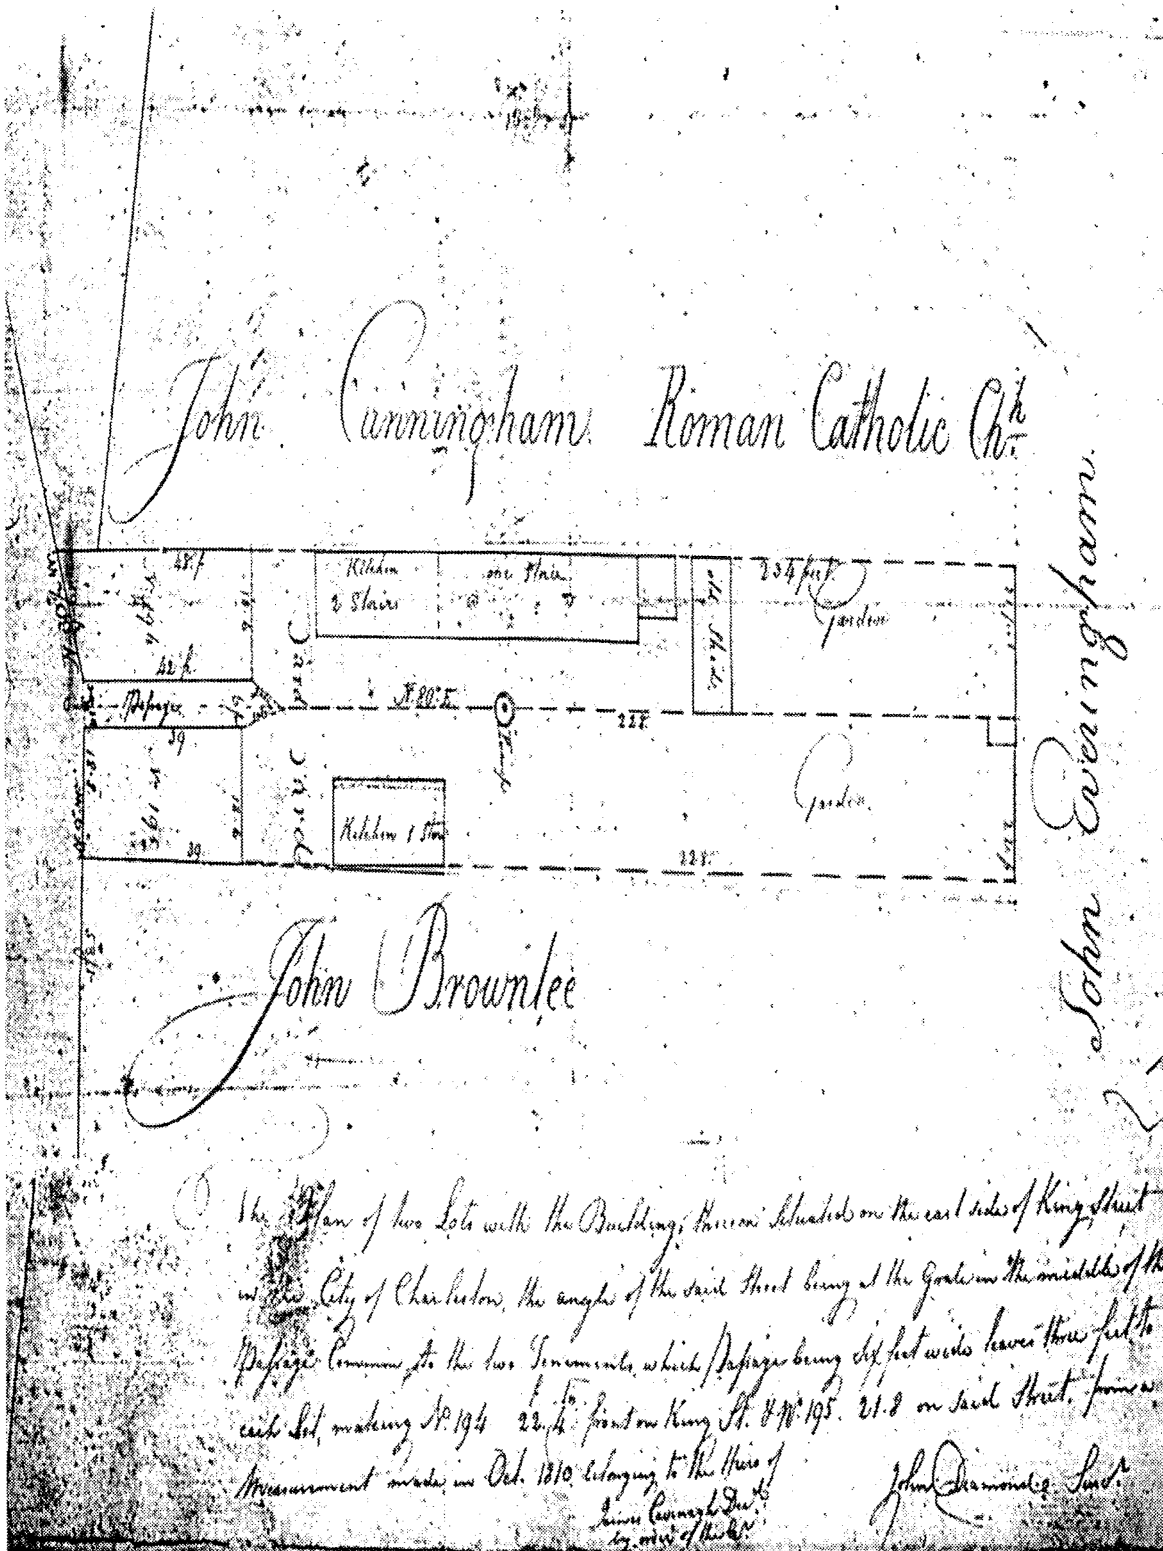 John Cunningham. Roman Catholic Ch.
48. f.
Kitchen
2 Stairs
one Stair
old Sheds
234 feet
Garden
No. 194
42 f.
Passage
39
Yard
N. 80° E
Pump
228.
No. 195
39
Yard
Kitchen 1 Stair
Garden.
228.
John Everingham.
John Brownlee
The Plan of two Lots with the Buildings thereon Situated on the east side of King Street
in the City of Charleston, the angle of the said Street being at the Grate in the middle of the
Passage Common to the two Tenements, which Passage being six feet wide leaves three feet to
each Lot, making No. 194 22. f. 4 In. front on King St. & No. 195. 21.8 on said Street, from a
Measurement made in Oct. 1810 belonging to the Heirs of
James Cavanagh Decd.
by order of
John Diamond Survr.